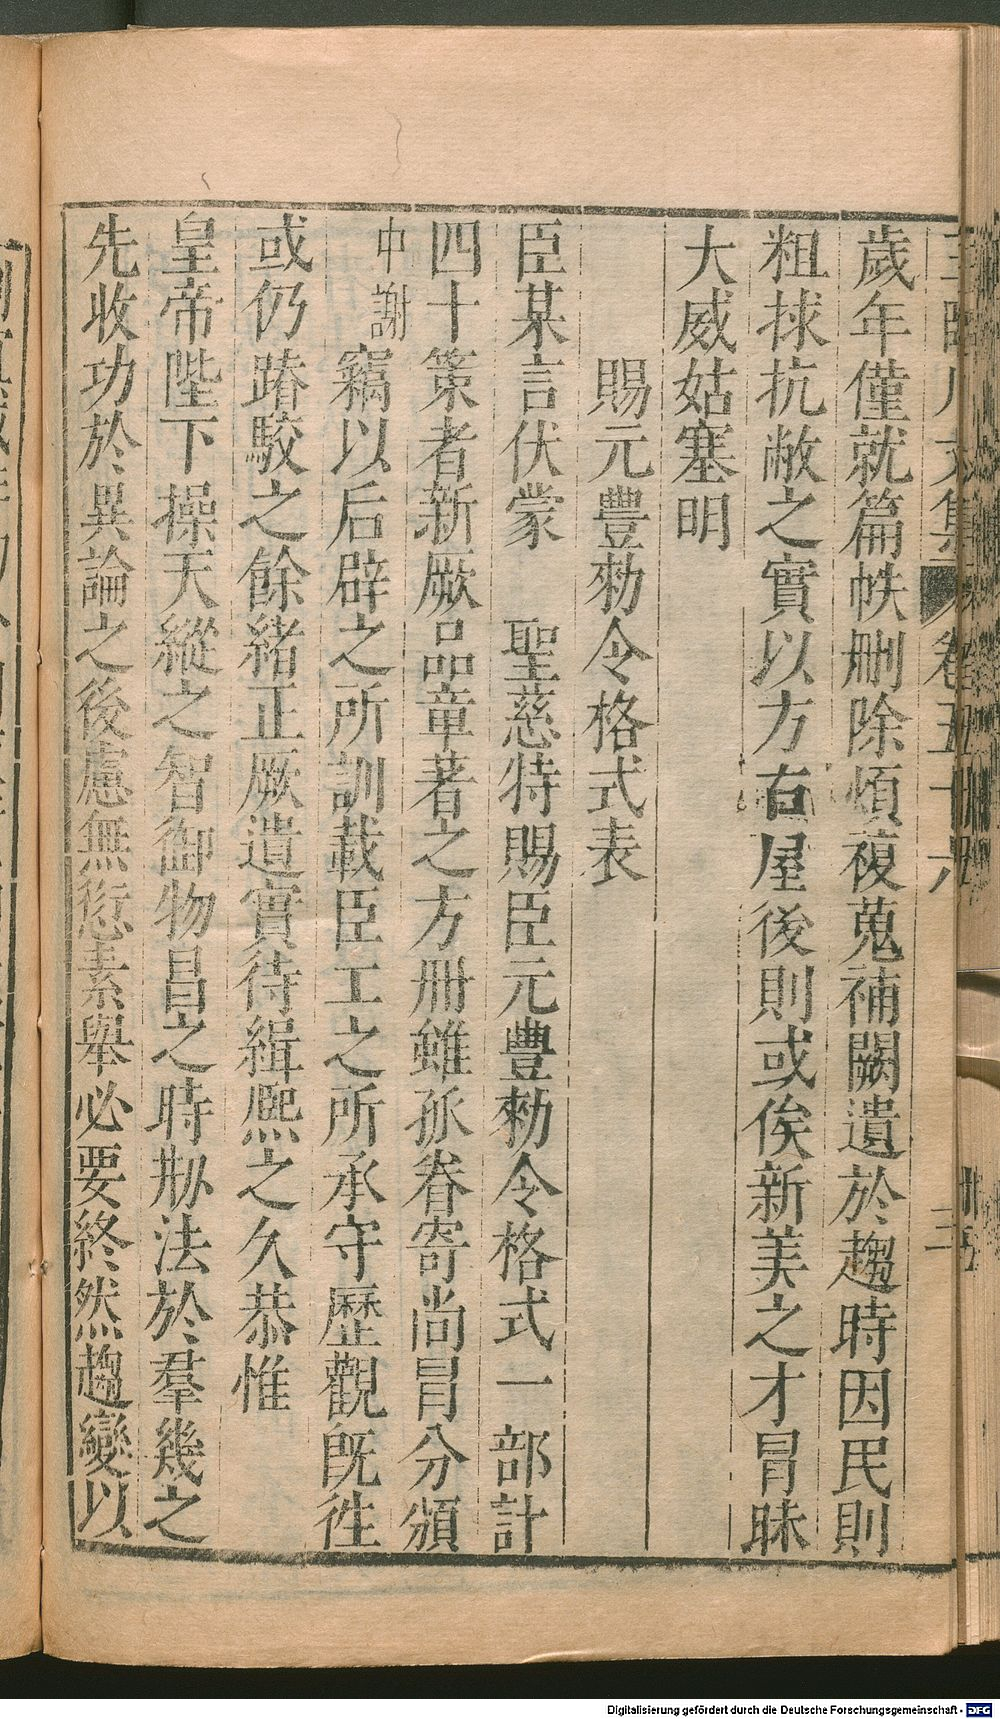 歲年僅就篇帙刪除煩複蒐補闕遺於趨時因民則
粗捄抗敝之實以方右屋後則或俟新美之才冒昧
大威姑塞明
賜元豐勑令格式表
臣某言伏蒙 聖慈特賜臣元豐勑令格式一部計
四十策者新厥品章著之方冊雖孤眷寄尚冒分頒
中謝竊以后辟之所訓載臣工之所承守歷觀旣徃
或仍踳駮之餘緒正厥遺實待緝熈之久恭惟
皇帝陛下操天縱之智御物昌之時刱法於羣幾之
先收功於異論之後慮無愆素舉必要終然趨變以
卷五十六
Digitalisierung gefördert durch die Deutsche Forschungsgemeinschaft - DFG